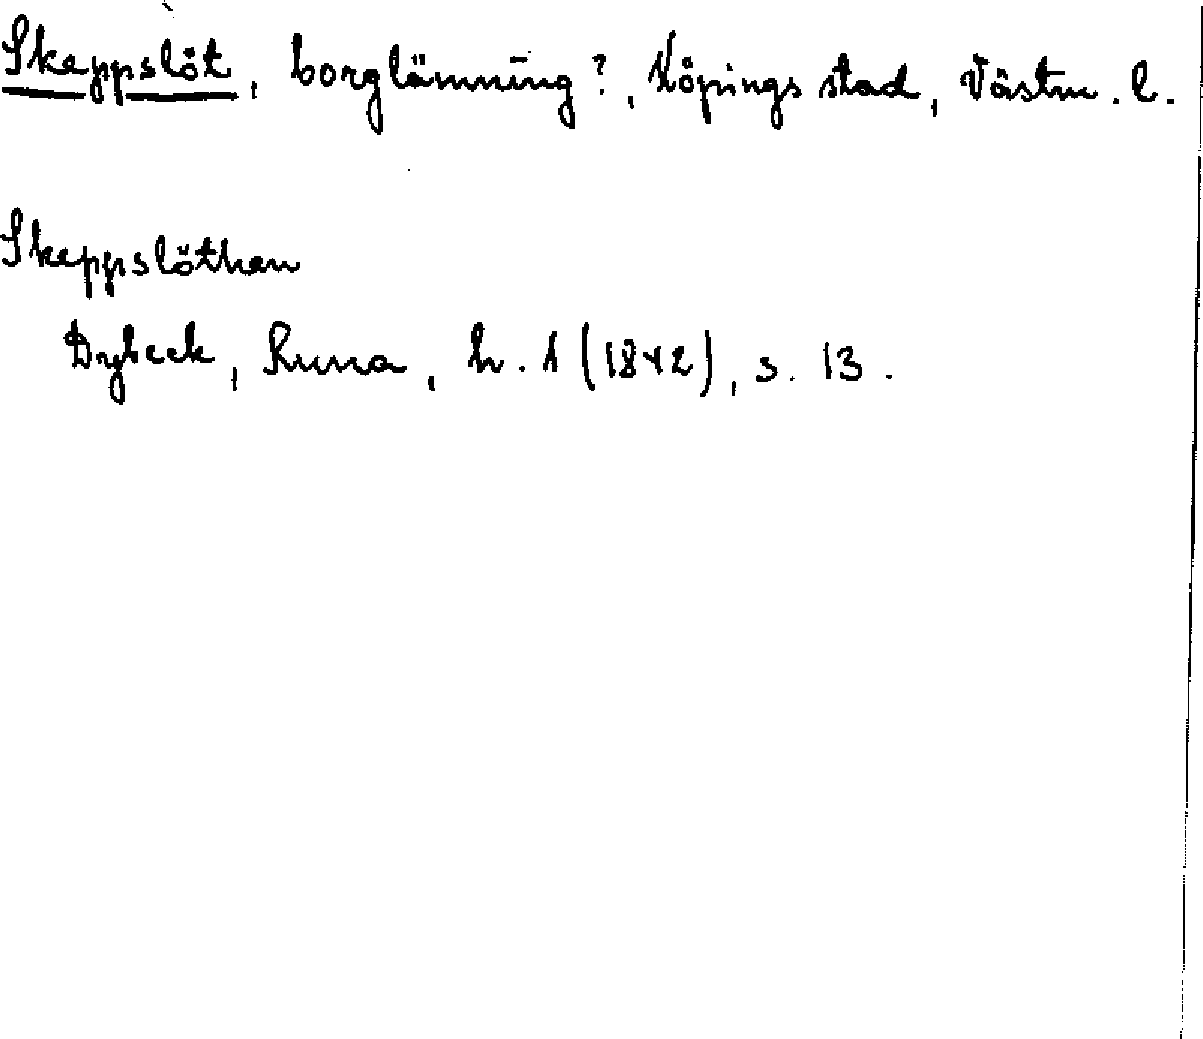 Skeppslöt, borglämning?, Köpings stad, Västm. l.
Skeppslöthen
Dybeck, Runa, h. 1 (1842), s. 13.